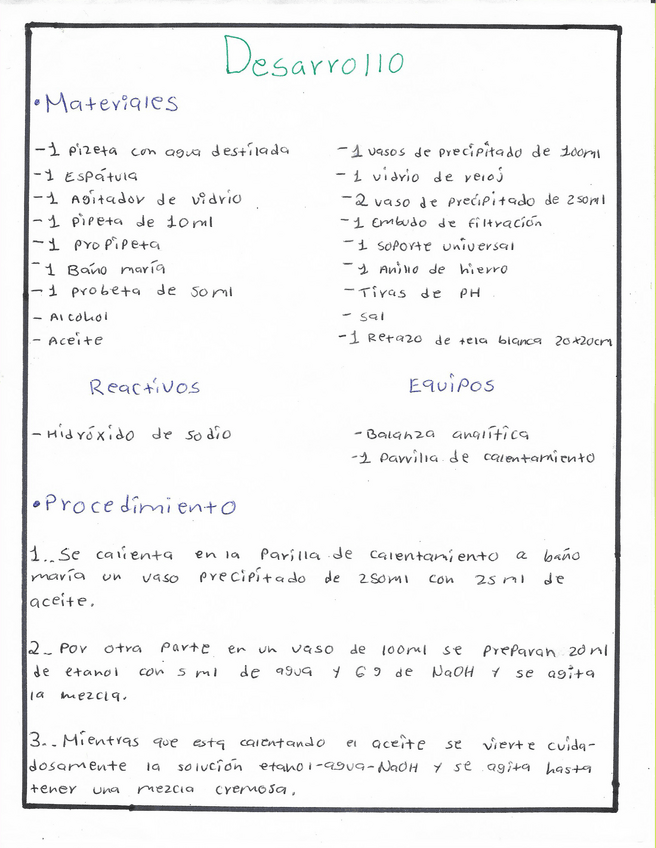 Desarrollo
• Materiales
- 1 Pizeta con agua destilada
- 1 Espátula
- 1 Agitador de vidrio
- 1 Pipeta de 10ml
- 1 Propipeta
- 1 Baño maría
- 1 Probeta de 50ml
- Alcohol
- Aceite
- 1 vasos de precipitado de 100ml
- 1 vidrio de reloj
- 2 vaso de precipitado de 250ml
- 1 Embudo de filtración
- 1 soporte universal
- 1 Anillo de hierro
- Tiras de PH
- sal
- 1 Retazo de tela blanca 20x20cm
Reactivos
- Hidróxido de sodio
Equipos
- Balanza analítica
- 1 Parrilla de calentamiento
• Procedimiento
1.- Se calienta en la Parilla de calentamiento a baño
maría un vaso precipitado de 250ml con 25 ml de
aceite.
2- Por otra parte en un vaso de 100ml se preparan 20 ml
de etanol con 5 ml de agua y 6g de NaOH y se agita
la mezcla.
3.- Mientras que esta calentando el aceite se vierte cuida-
dosamente la solución etanol-agua-NaOH y se agita hasta
tener una mezcla cremosa.